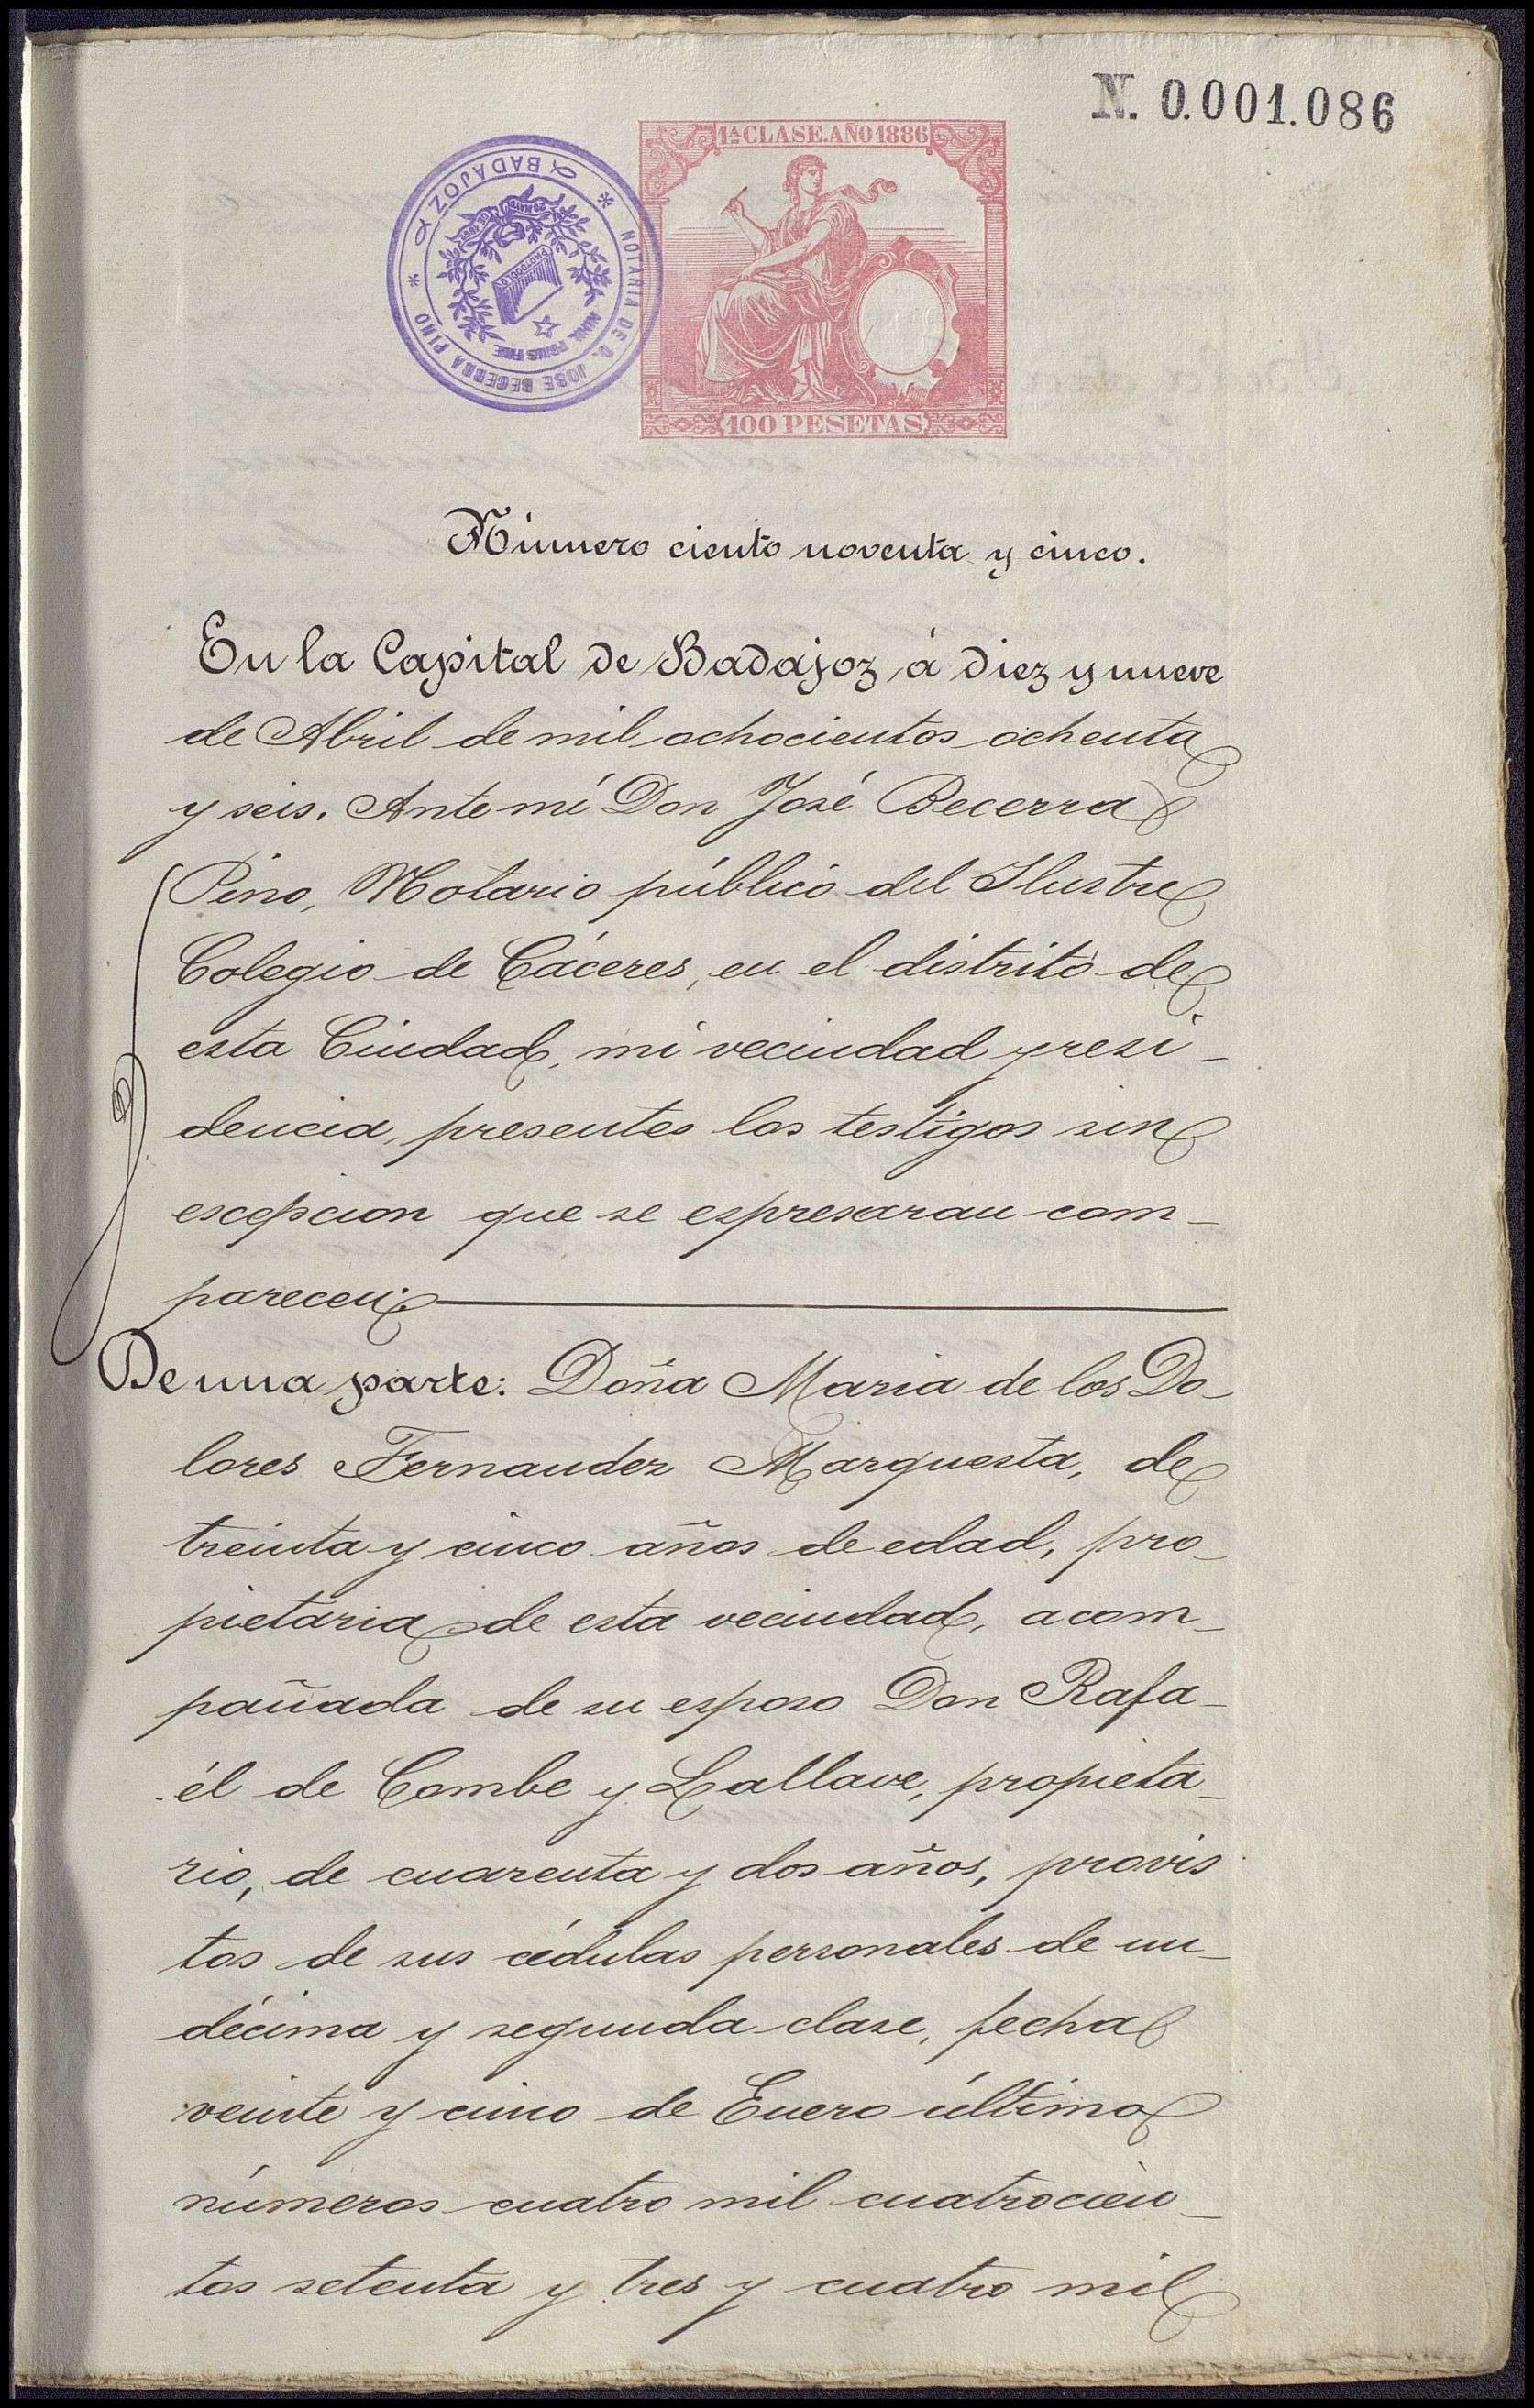 N. 0.001.086
1ª CLASE. AÑO 1886
* NOTARIA DE D. JOSE BECERRA PINO *
BADAJOZ
PROTOCOLO
NIHIL PRIUS FIDE
100 PESETAS
Número ciento noventa y cinco.
En la Capital de Badajoz, á diez y nueve
de Abril de mil ochocientos ochenta
y seis. Ante mí Don José Becerra
Pino, Notario público del Ilustre
Colegio de Cáceres, en el distrito de
esta Ciudad, mi vecindad y resi-
dencia, presentes los testigos sin
escepcion que se espresaran com-
parecen:
De una parte: Doña Maria de los Do-
lores Fernandez Marquesta, de
treinta y cinco años de edad, pro-
pietaria de esta vecindad, acom-
pañada de su esposo Don Rafa-
él de Combe y Lallave, propieta-
rio, de cuarenta y dos años, provis
tos de sus cédulas personales de un-
décima y segunda clase, fecha
veinte y cinco de Enero último
números cuatro mil cuatrocien-
tos setenta y tres y cuatro mil